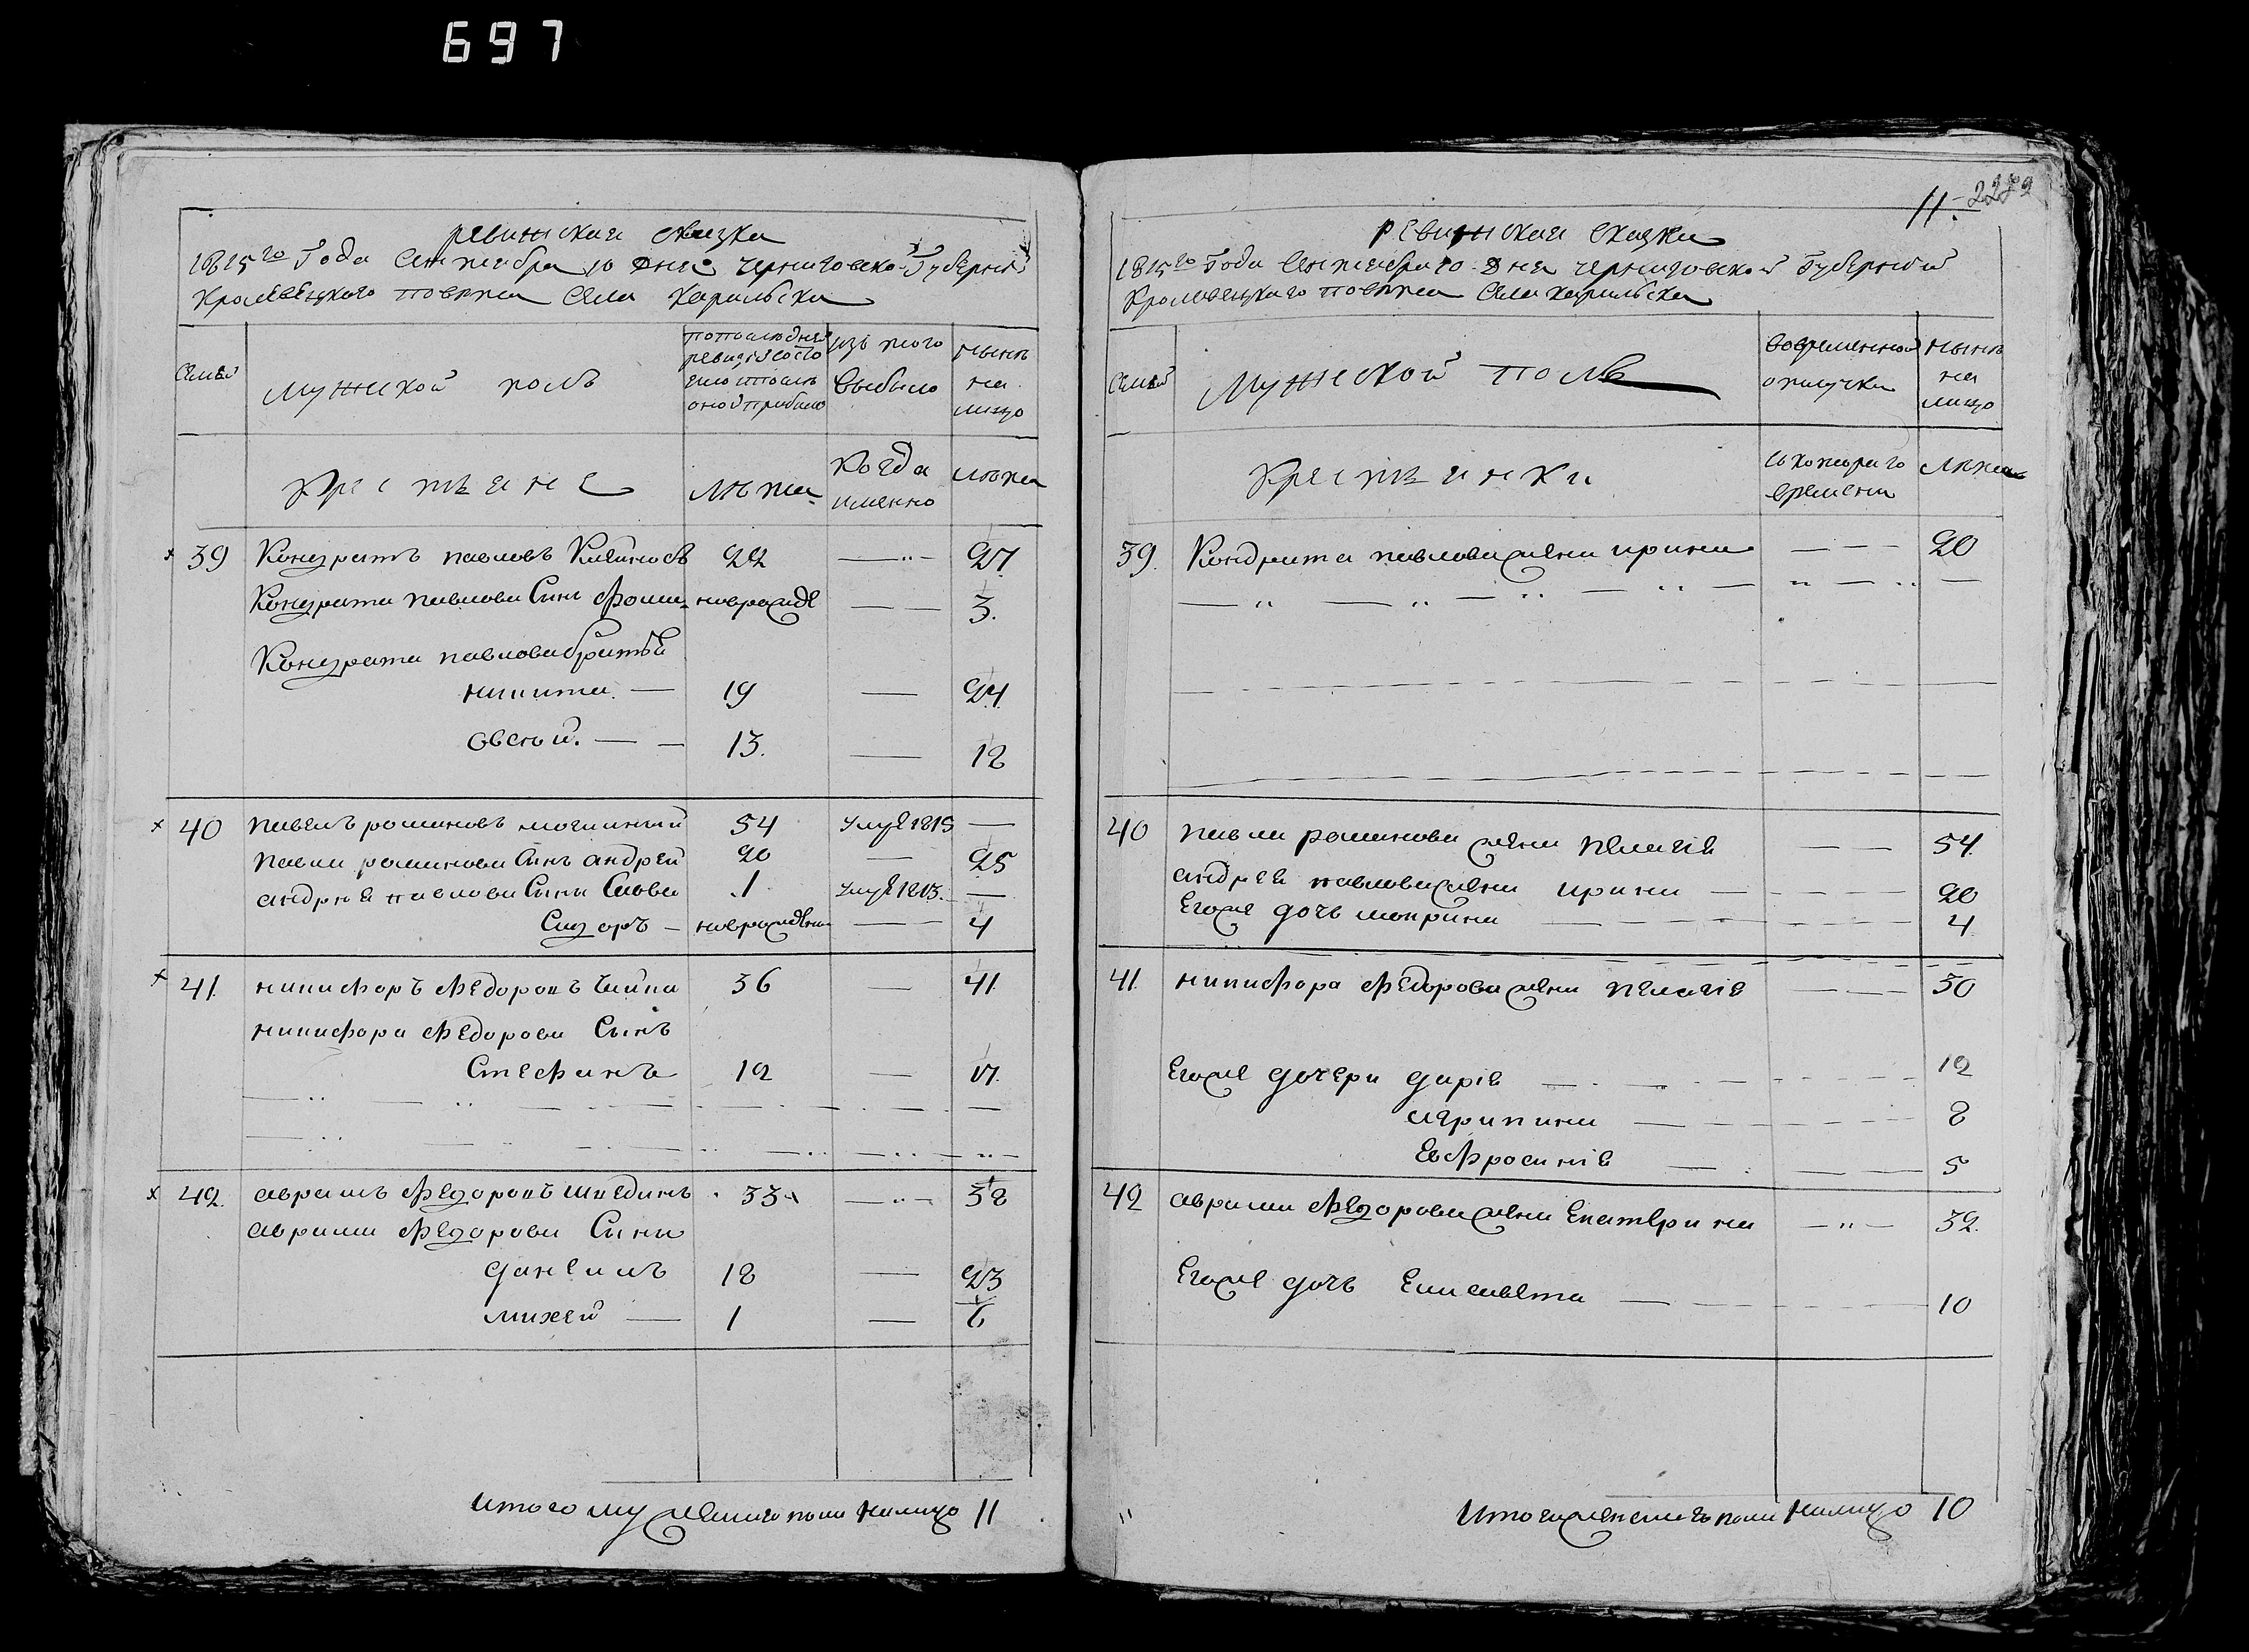 697
ревижская сказка
1815го Года Сентября 10 Дня Черниговской Губернии
Кролевецкого повета Села Карильска
Семьи
Мужской полъ
попоследней ревизіи состояло ипосле оной прибыло
изъ того выбыло
ныне на лицо
Крестьяне
Лета
Когда именно
лета
39 Кондратъ павловъ 22 — 27
Кондрата павлова Сынъ Фома новрожде — 3.
Кондрата павлова братья
никита. — 19 — 24
овсей. — 13. — 18
40 павелъ романовъ могилный 54 умре 1815 —
павла романова Сынъ андрей 20 — 25
андрея павлова Сыны Савва 1 умре 1813. —
Сидоръ — новрожденъ — 4
41. никифоръ Федоровъ 36 — 41
никифора Федорова Сынъ
Стефанъ 12 — 17.
42. аврамъ Федоровъ Швединъ 33 — 38
аврама Федорова Сыны
данеилъ 18 — 23
михей — 1 — 6
итого мужеска пола налицо 11
11. 2272
ревижская сказка
1815го Года Сентября 10 Дня Черниговской Губернии
Кролевецкаго повета Села Карильска
Семьи
Мужеской полъ
вовременной отлучке
ныне на лицо
Крестьянки
скотораго времени
Лета
39. Кондрата павлова жена ирина — — 20
40 павла романова жена Пелагея — — 54.
андрея павлова жена ирина — 20
Егоже дочь мокрина — 4
41. никифора Федорова жена Пелагея — 30
Егоже дочери дарія — 12
агрипина — 8
Евфросинія — 5
42 аврама Федорова жена Екатерина — 32.
Егоже дочь Елисавета — 10
Итого женска пола налицо 10